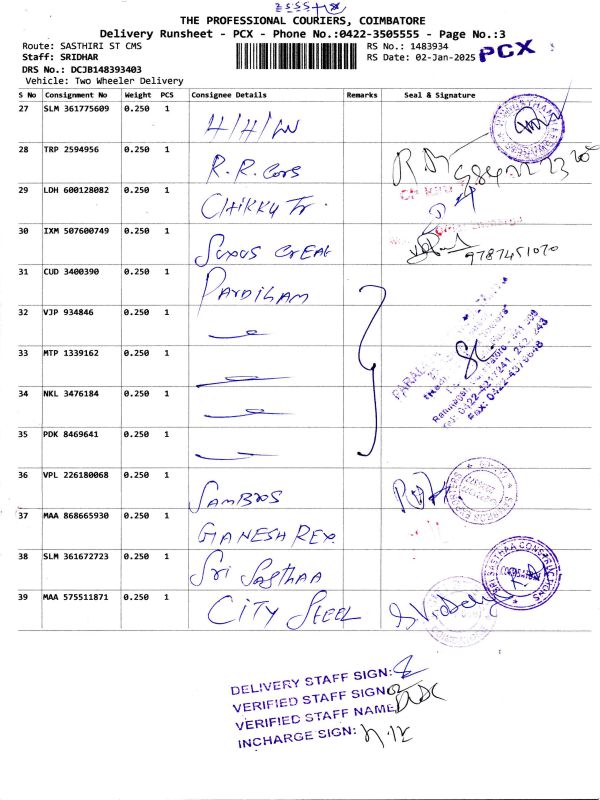 THE PROFESSIONAL COURIERS, COIMBATORE
Delivery Runsheet - PCX - Phone No.:0422-3505555 - Page No.:3
Route: SASTHIRI ST CMS
RS No.: 1483934
PCX
Staff: SRIDHAR
RS Date: 02-Jan-2025
DRS No.: DCJB148393403
Vehicle: Two Wheeler Delivery
S No Consignment No Weight PCS Consignee Details Remarks Seal & Signature
27 SLM 361775609 0.250 1
28 TRP 2594956 0.250 1 R.R. Cors
29 LDH 600128082 0.250 1 CHIKKU Tr.
30 IXM 507600749 0.250 1
9787451070
31 CUD 3400390 0.250 1
32 VJP 934846 0.250 1
33 MTP 1339162 0.250 1
34 NKL 3476184 0.250 1
35 PDK 8469641 0.250 1
36 VPL 226180068 0.250 1 SAMBROS
37 MAA 868665930 0.250 1 GANESH REX.
38 SLM 361672723 0.250 1 Sri Sasthaa
39 MAA 575511871 0.250 1 CITY STEEL
DELIVERY STAFF SIGN:
VERIFIED STAFF SIGN
VERIFIED STAFF NAME
INCHARGE SIGN: